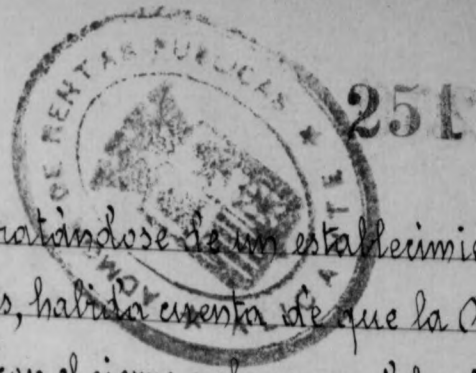 ADMON DE RENTAS PUBLICAS ★ ALICANTE ★
251
tratándose de un establecimie
s, habida cuenta de que la C